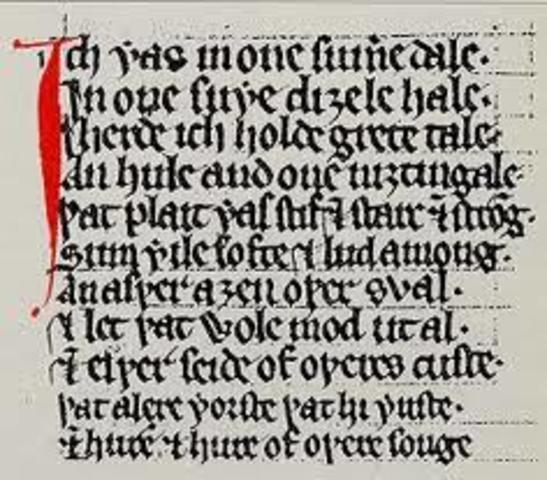 Ich ƿas in one sum̃e dale.
In one suþe diȝele hale.
Iherde ich holde grete tale.
An hule and one niȝtingale.
Þat plait ƿas stif ⁊ starc ⁊ strōg.
Sum ƿile softe ⁊ lud among.
An aiþer aȝen oþer sval.
⁊ let þat wole mod ut al.
⁊ eiþer seide of oþeres custe.
Þat alere ƿorste þat hi ƿuste.
⁊ hure ⁊ hure of oþere songe